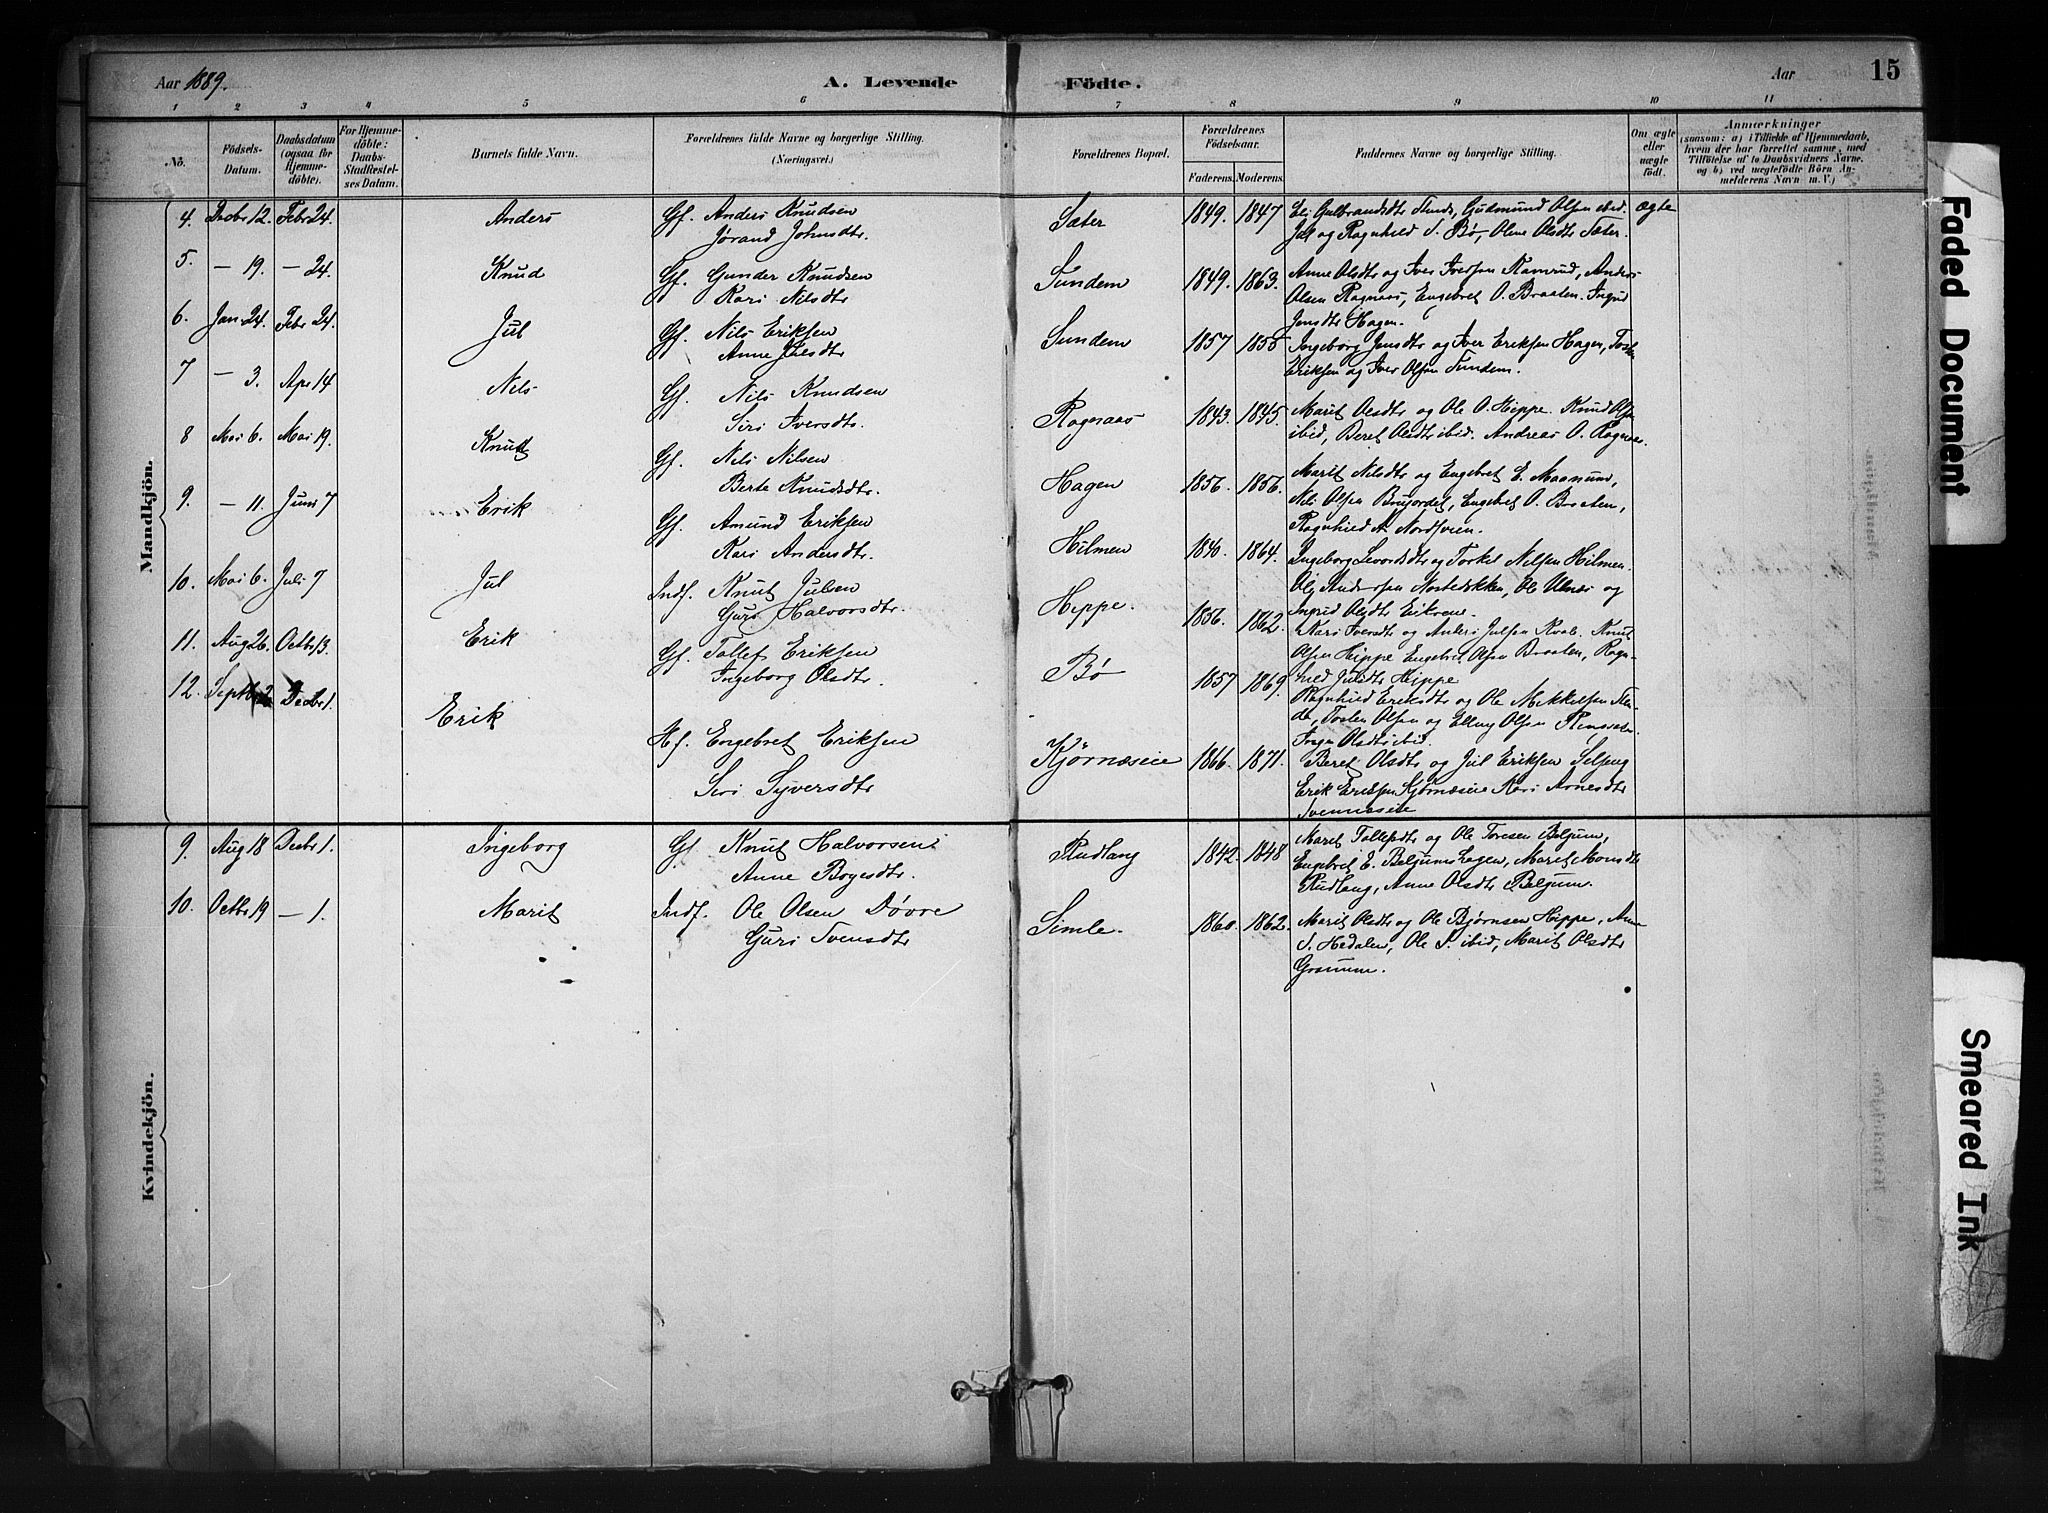 Aar 1889.
A. Levende
Födte.
Aar
15
1 2 3 4 5 6 7 8 9 10 11
No.
Födsels-Datum.
Daabsdatum (ogsaa for Hjemmedöbte).
For Hjemmedöbte: Daabs-Stadfæstelses Datum.
Barnets fulde Navn.
Forældrenes fulde Navne og borgerlige Stilling. (Næringsvei.)
Forældrenes Bopæl.
Forældrenes Födselsaar.
Faderens. Moderens.
Faddernes Navne og borgerlige Stilling.
Om ægte eller uægte födt.
Anmærkninger
(saasom: a) i Tilfælde af Hjemmedaab, hvem der har forrettet samme, med Tilföielse af to Daabsvidners Navne. og b) ved uægtefödte Börn Anmelderens Navn m. V.)
Mandkjön.
4. Decbr 12. Febr 24. Anders Gf. Anders Knudsen
Jørand Johnsdtr.
Sæter 1849. 1847 Gulbrandsdtr Gudmund Olsen ibid. ægte
og Ragnhild S. Bø, Olene Olsdtr Sæter.
5. — 19. — 24. Knud Gf. Gunder Knudsen
Kari Nilsdtr
Sundem 1849. 1863. Anne Olsdtr og Iver Iversen Ramrud, Anders
Olsen Rognaas, Engebret O. Braaten. Ingrid
Jensdtr Hagen.
6. Jan 24. Febr 24. Jul Gf. Nils Eriksen
Anne Julsdtr
Sundem 1857 1855 Ingeborg Jensdtr og Iver Eriksen Hagen,
Eriksen og Iver Olsen Sundem.
7 — 3. Apr 14 Nils Gf. Nils Knudsen
Siri Iversdtr.
Rognaas 1843. 1845. Marit Olsdtr og Ole O. Hippe. Knud Olsen
ibid, Beret Olsdtr ibid. Andreas O. Rognaas.
8 Mai 6. Mai 19. Knut Gf. Nils Nilsen
Berte Knudsdtr.
Hagen 1856. 1856. Marit Nilsdtr og Engebret E. Maanum,
Nils Olsen Brujordet, Engebret O. Braaten,
Ragnhild A. Nordsveen.
9. — 11. Juni 7 Erik Gf. Amund Eriksen
Kari Andersdtr.
Hilmen 1840. 1864. Ingeborg og Torkel Nilsen Hilmen.
Ole Ulnes og
Ingrid Olsdtr Eikren.
10. Mai 6. Juli 7 Jul Indf. Knut Julsen
Guri Halvorsdtr.
Hippe. 1856. 1862. Kari Iversdtr og Anders Julsen Kval. Knut
Olsen Hippe Engebret Olsen Braaten, Ragn-
hild Julsdtr Hippe
11. Aug 26. Octbr 13. Erik Gf. Tollef Eriksen
Ingeborg Olsdtr.
Bø 1857 1869. Ragnhild Eriksdtr og Ole Mikkelsen
Tosten Olsen og Elling Olsen
Inger Olsdtr ibid.
12. Septbr 2 Decbr 1. Erik Hf. Engebret Eriksen
Siri Syversdtr
Kjørnæseie 1866. 1871. Beret Olsdtr og Jul Eriksen
Erik Eriksen Kjørnæseie Kari Arnesdtr
Svenneseie
Kvindekjön.
9. Aug 18 Decbr 1. Ingeborg Gf. Knut Halvorsen
Anne Boyesdtr.
Rudlang 1842. 1848 Marit Tollefsdtr og Ole Toresen Belgum,
Engebret E. Belgumshagen, Marit Monsdtr
Rudlang, Anne Olsdtr Belgum.
10. Octbr 19 — 1. Marit Indf. Ole Olsen Døvre
Guri Svensdtr
Simle. 1860. 1862. Marit Olsdtr og Ole Bjørnsen Hippe, Anne
S. Hedalen, Ole S. ibid, Marit Olsdtr
Granum.
Faded Document
Smeared Ink